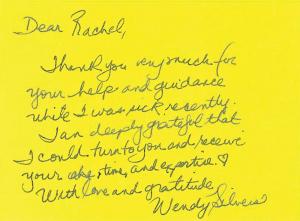 Dear Rachel,
Thank you very much for
your help and guidance
while I was sick recently.
I am deeply grateful that
I could turn to you and receive
your time, and expertise.
With love and gratitude
Wendy Silvers